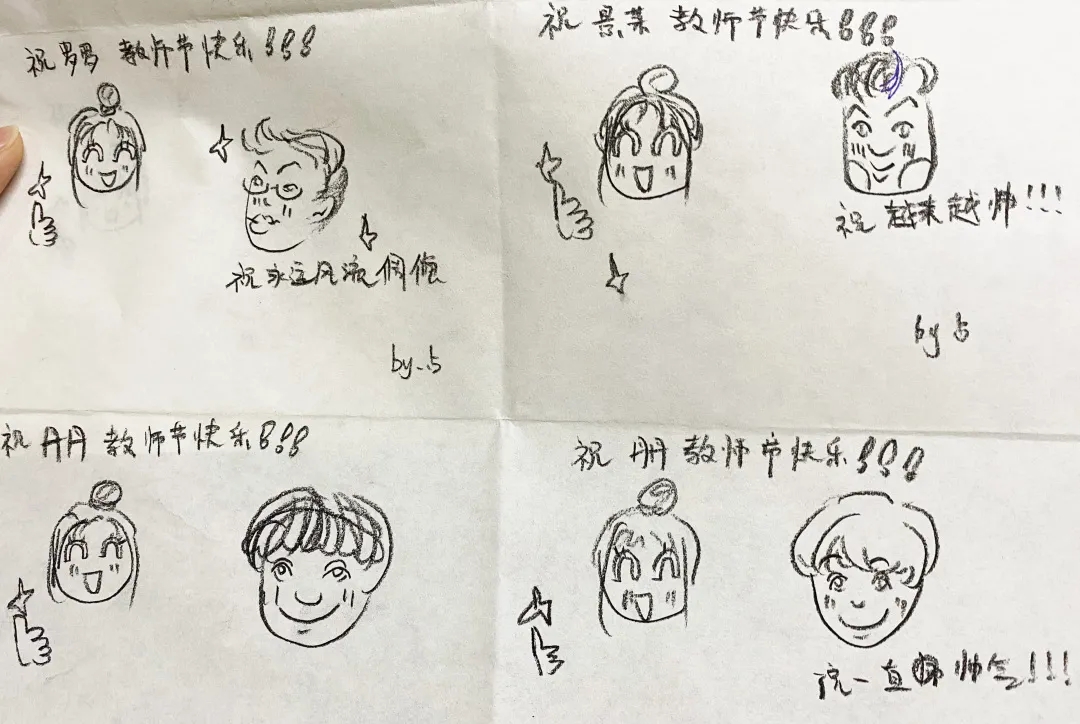 祝 罗罗 教师节快乐!!!
祝永远风流倜傥
by 占
祝 景荣 教师节快乐!!!
祝 越来越帅!!!
by 占
祝 丹丹 教师节快乐!!!
祝 册册 教师节快乐!!!
祝一直 帅气!!!